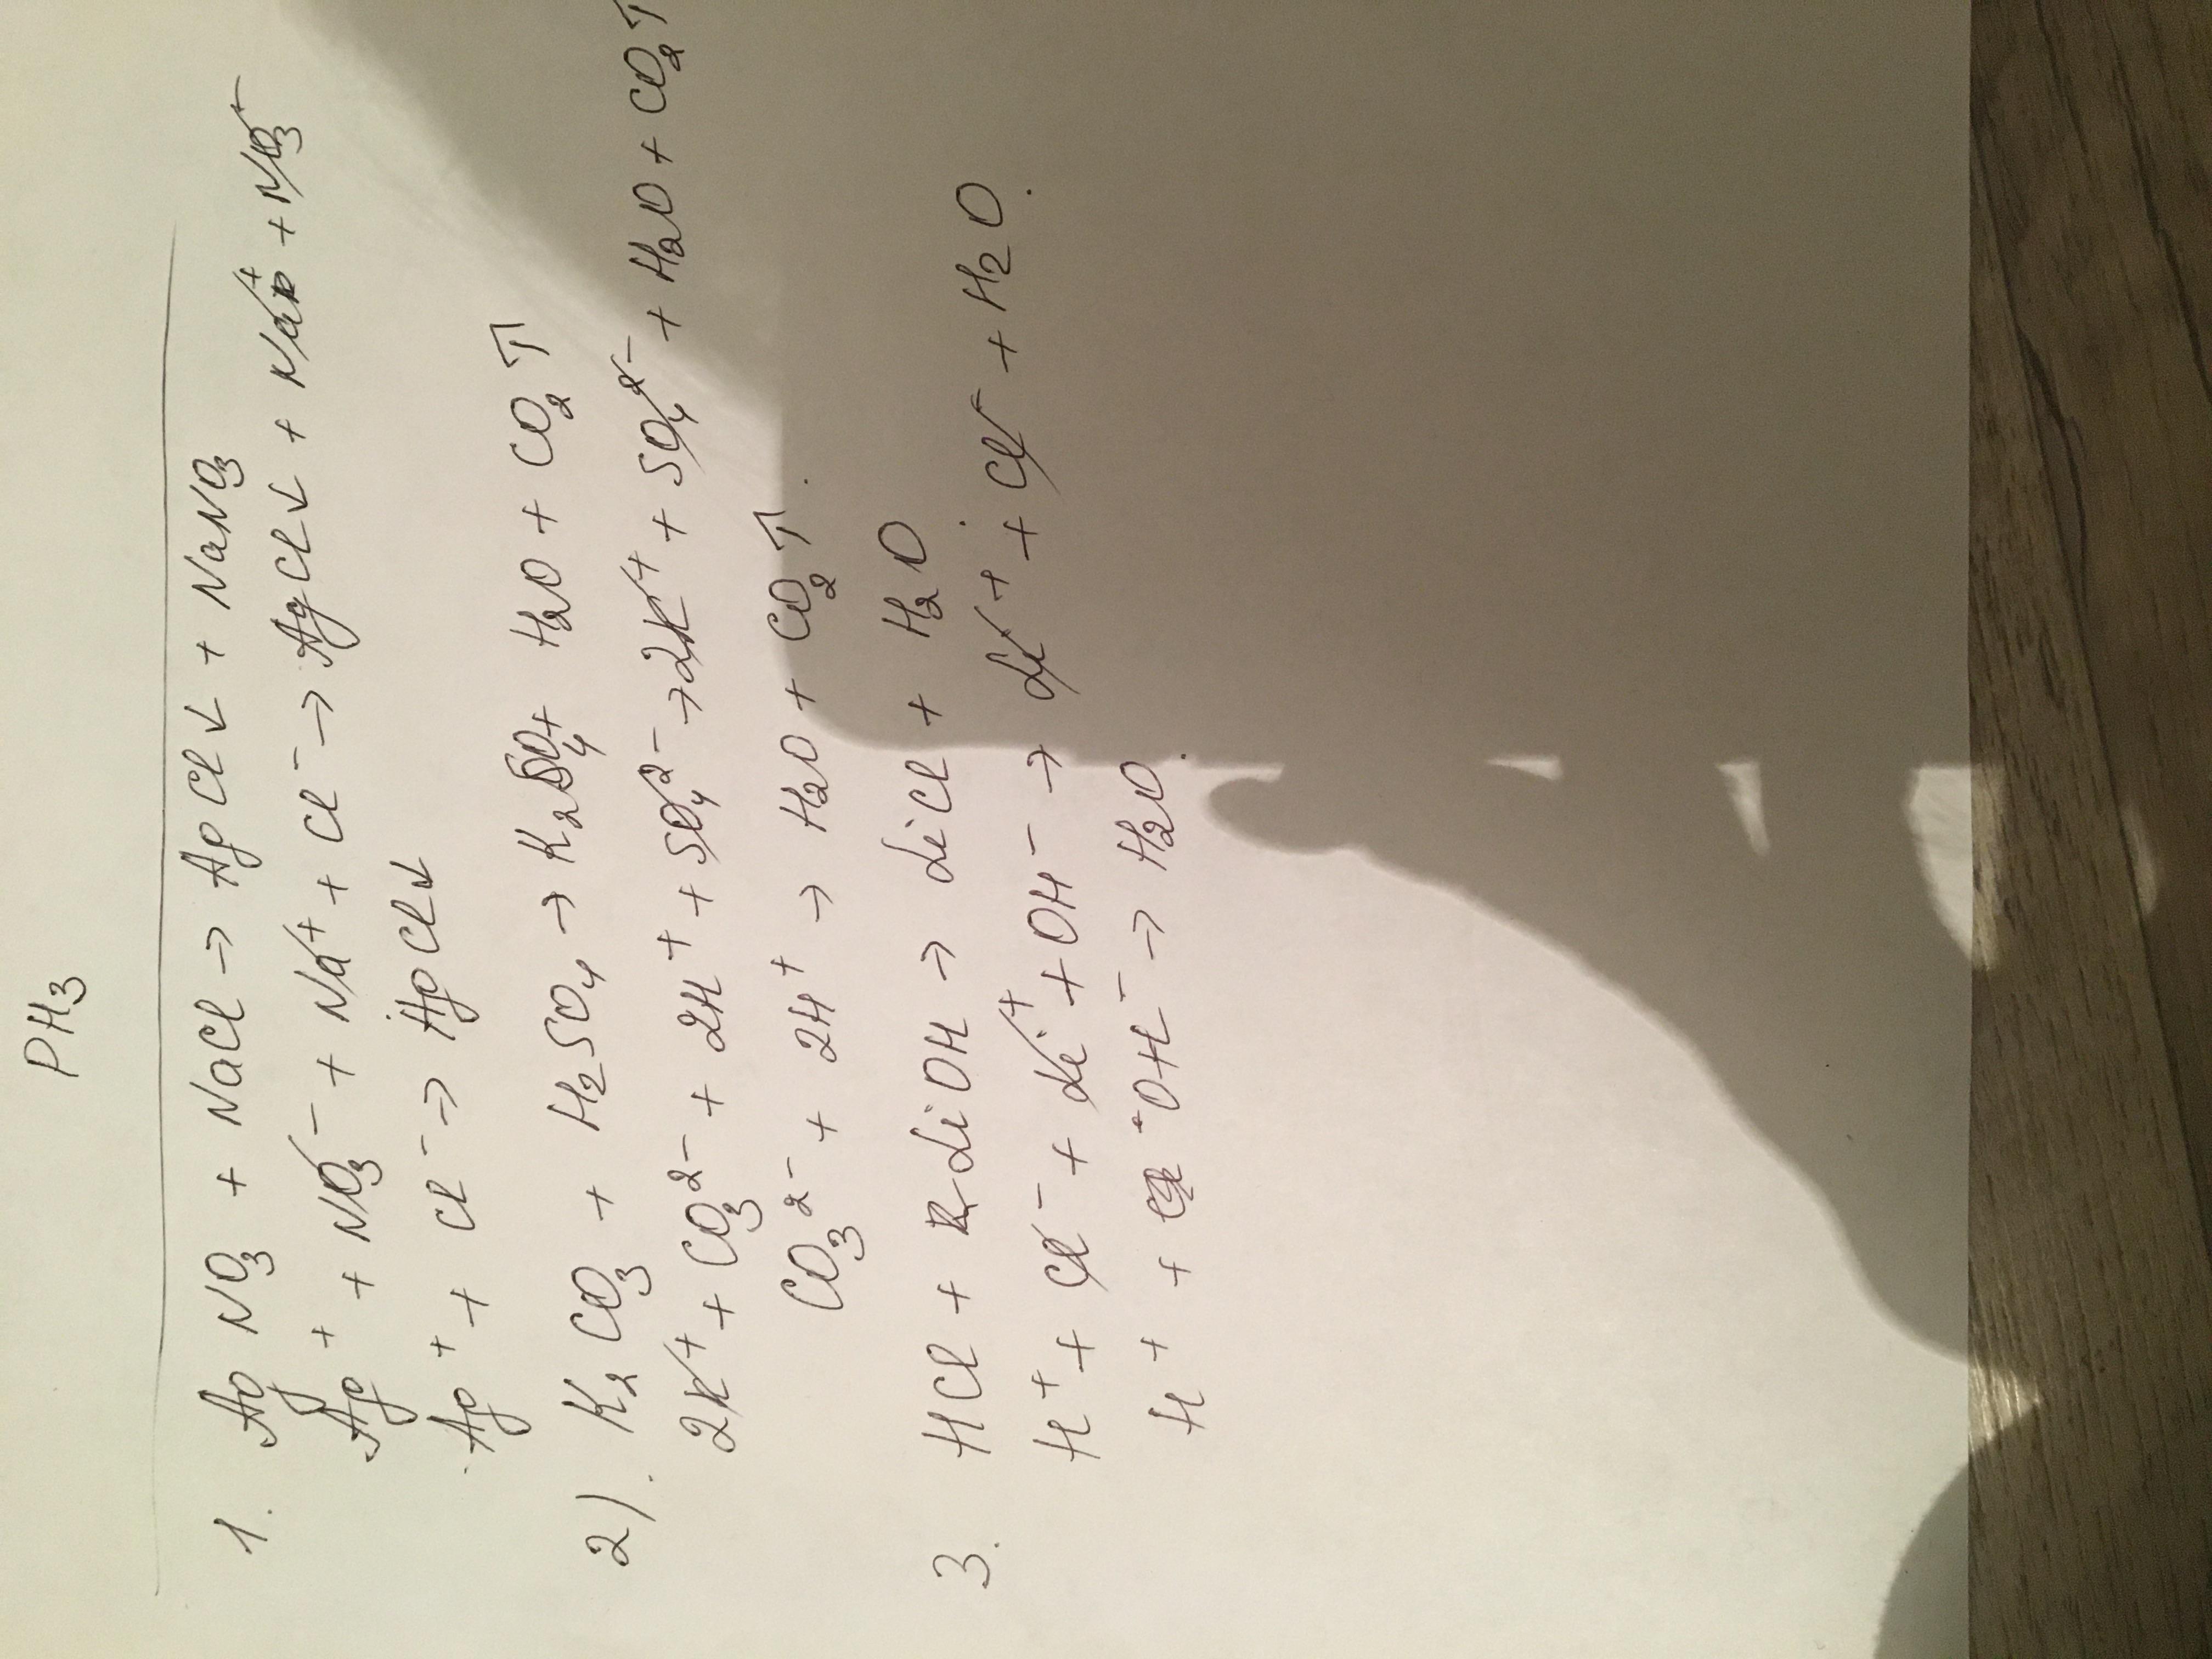 PH₃
1. AgNO₃ + NaCl → AgCl↓ + NaNO₃
Ag⁺ + NO₃⁻ + Na⁺ + Cl⁻ → AgCl↓ + Na⁺ + NO₃⁻
Ag⁺ + Cl⁻ → AgCl↓
2). K₂CO₃ + H₂SO₄ → K₂SO₄ + H₂O + CO₂↑
2K⁺ + CO₃²⁻ + 2H⁺ + SO₄²⁻ → 2K⁺ + SO₄²⁻ + H₂O + CO₂↑
CO₃²⁻ + 2H⁺ → H₂O + CO₂↑.
3. HCl + LiOH → LiCl + H₂O.
H⁺ + Cl⁻ + Li⁺ + OH⁻ → Li⁺ + Cl⁻ + H₂O.
H⁺ + OH⁻ → H₂O.